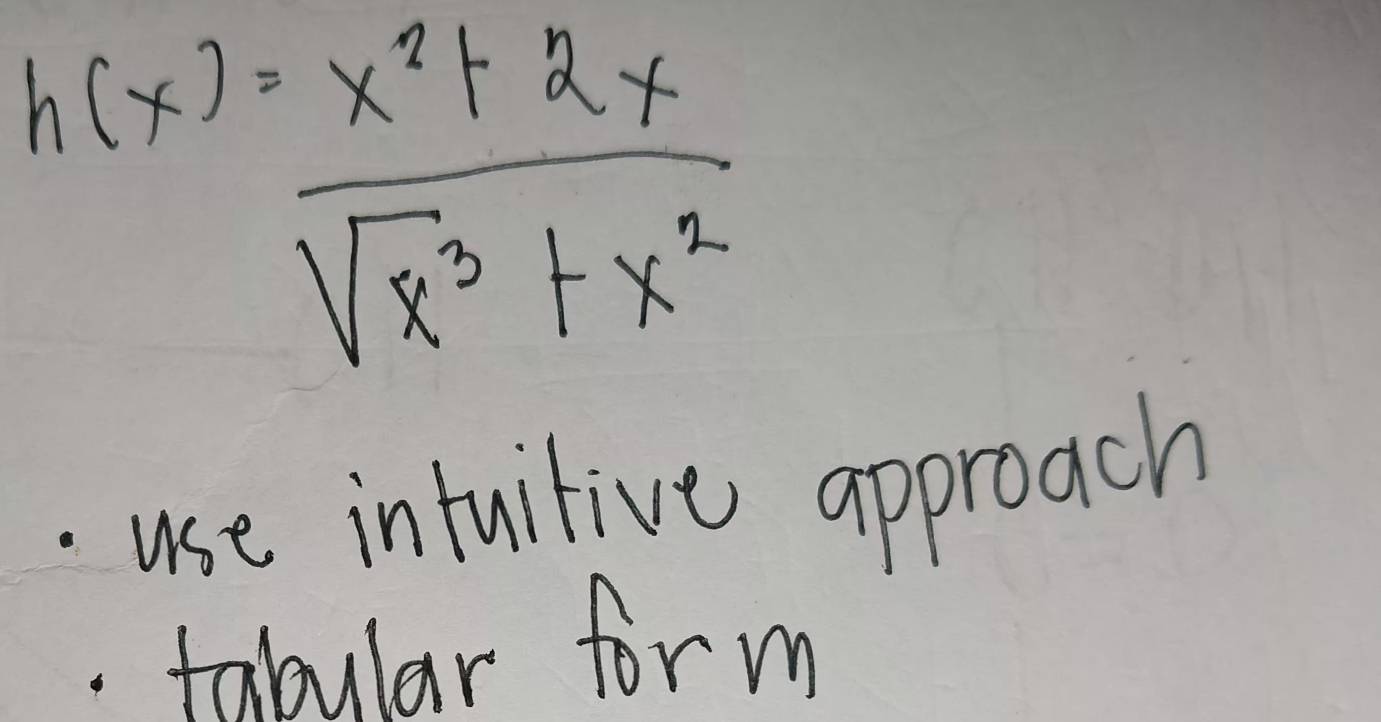 h(x) = x² + 2x
√x³ + x²
· use intuitive approach
· tabular form